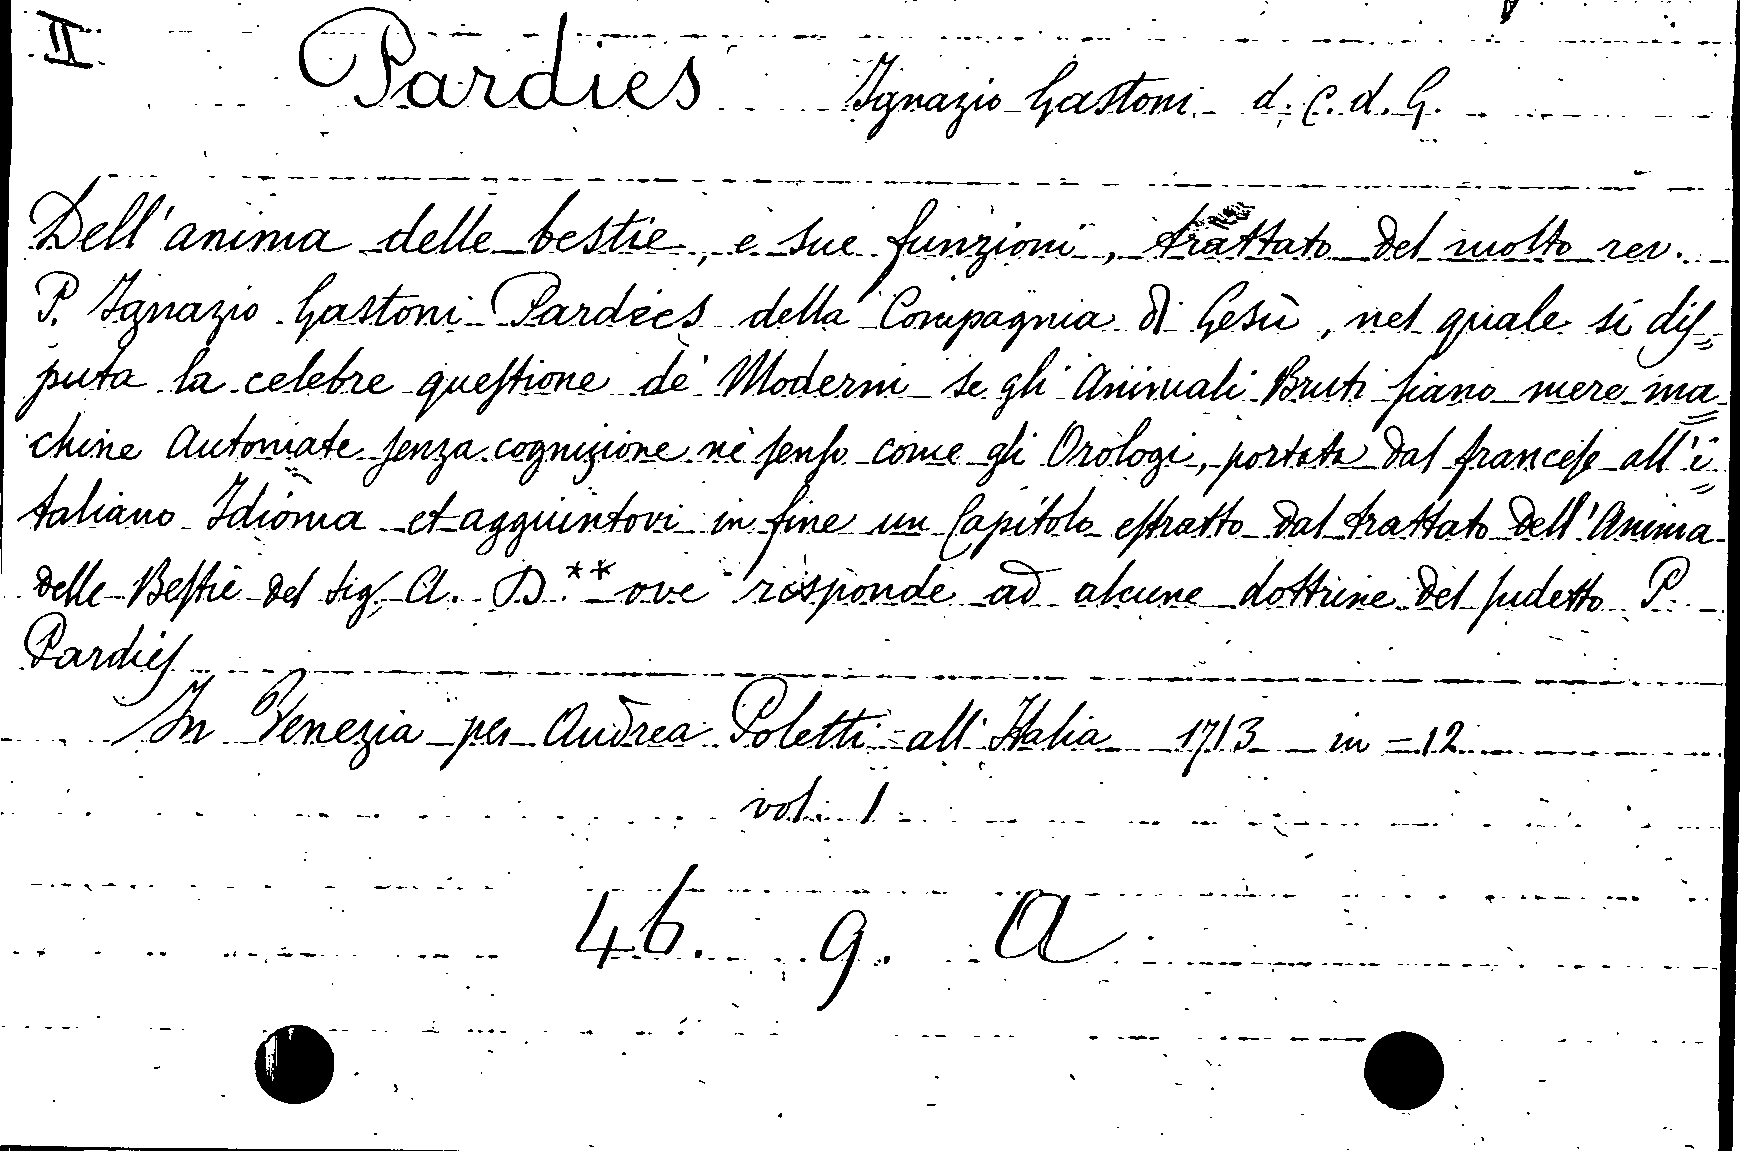 II
Pardies Ignazio Gastoni d. C. d. G.
Dell'anima delle bestie, e sue funzioni, trattato del molto rev.
P. Ignazio Gastoni Pardies della Compagnia di Gesù, nel quale si dis=
puta la celebre questione de' Moderni se gli Animali Bruti siano mere ma=
chine Automate senza cognizione nè senso come gli Orologi, portata dal francese all'i=
taliano Idioma et aggiuntovi in fine un Capitolo estratto dal trattato dell'Anima
delle Bestie del Sig. A. D.** ove risponde ad alcune dottrine del sudetto P.
Pardies
In Venezia per Andrea Poletti all'Italia 1713 in-12
vol. 1
46. 9. A